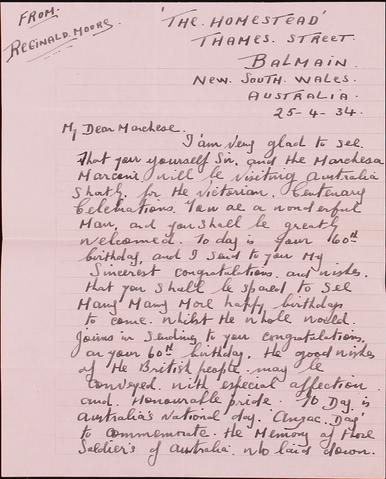 FROM.
REGINALD. MOORE.
'THE. HOMESTEAD'
THAMES. STREET.
BALMAIN.
NEW. SOUTH. WALES.
AUSTRALIA.
25-4-34.
My Dear Marchese.
I am very glad to see.
That your yourself Sir. and the Marchesa
Marconi will be visiting Australia
Shortly. for the Victorian. Centenary
Celebrations. You are a wonderful
Man, and you shall be greatly
welcomed. To day is your 60th
birthday, and I send to you My
Sincerest congratulations. and wishes.
that you shall be spared to see
Many Many More happy birthdays
to come. Whilst the whole world.
Joins in sending to you congratulations.
on your 60th birthday. The good wishes
of the British people. may be
conveyed. with especial affection.
and. Honourable pride. To Day. is
Australia's National day. 'Anzac. Day'
to commemorate. the Memory of those
Soldier's of Australia. who laid down.